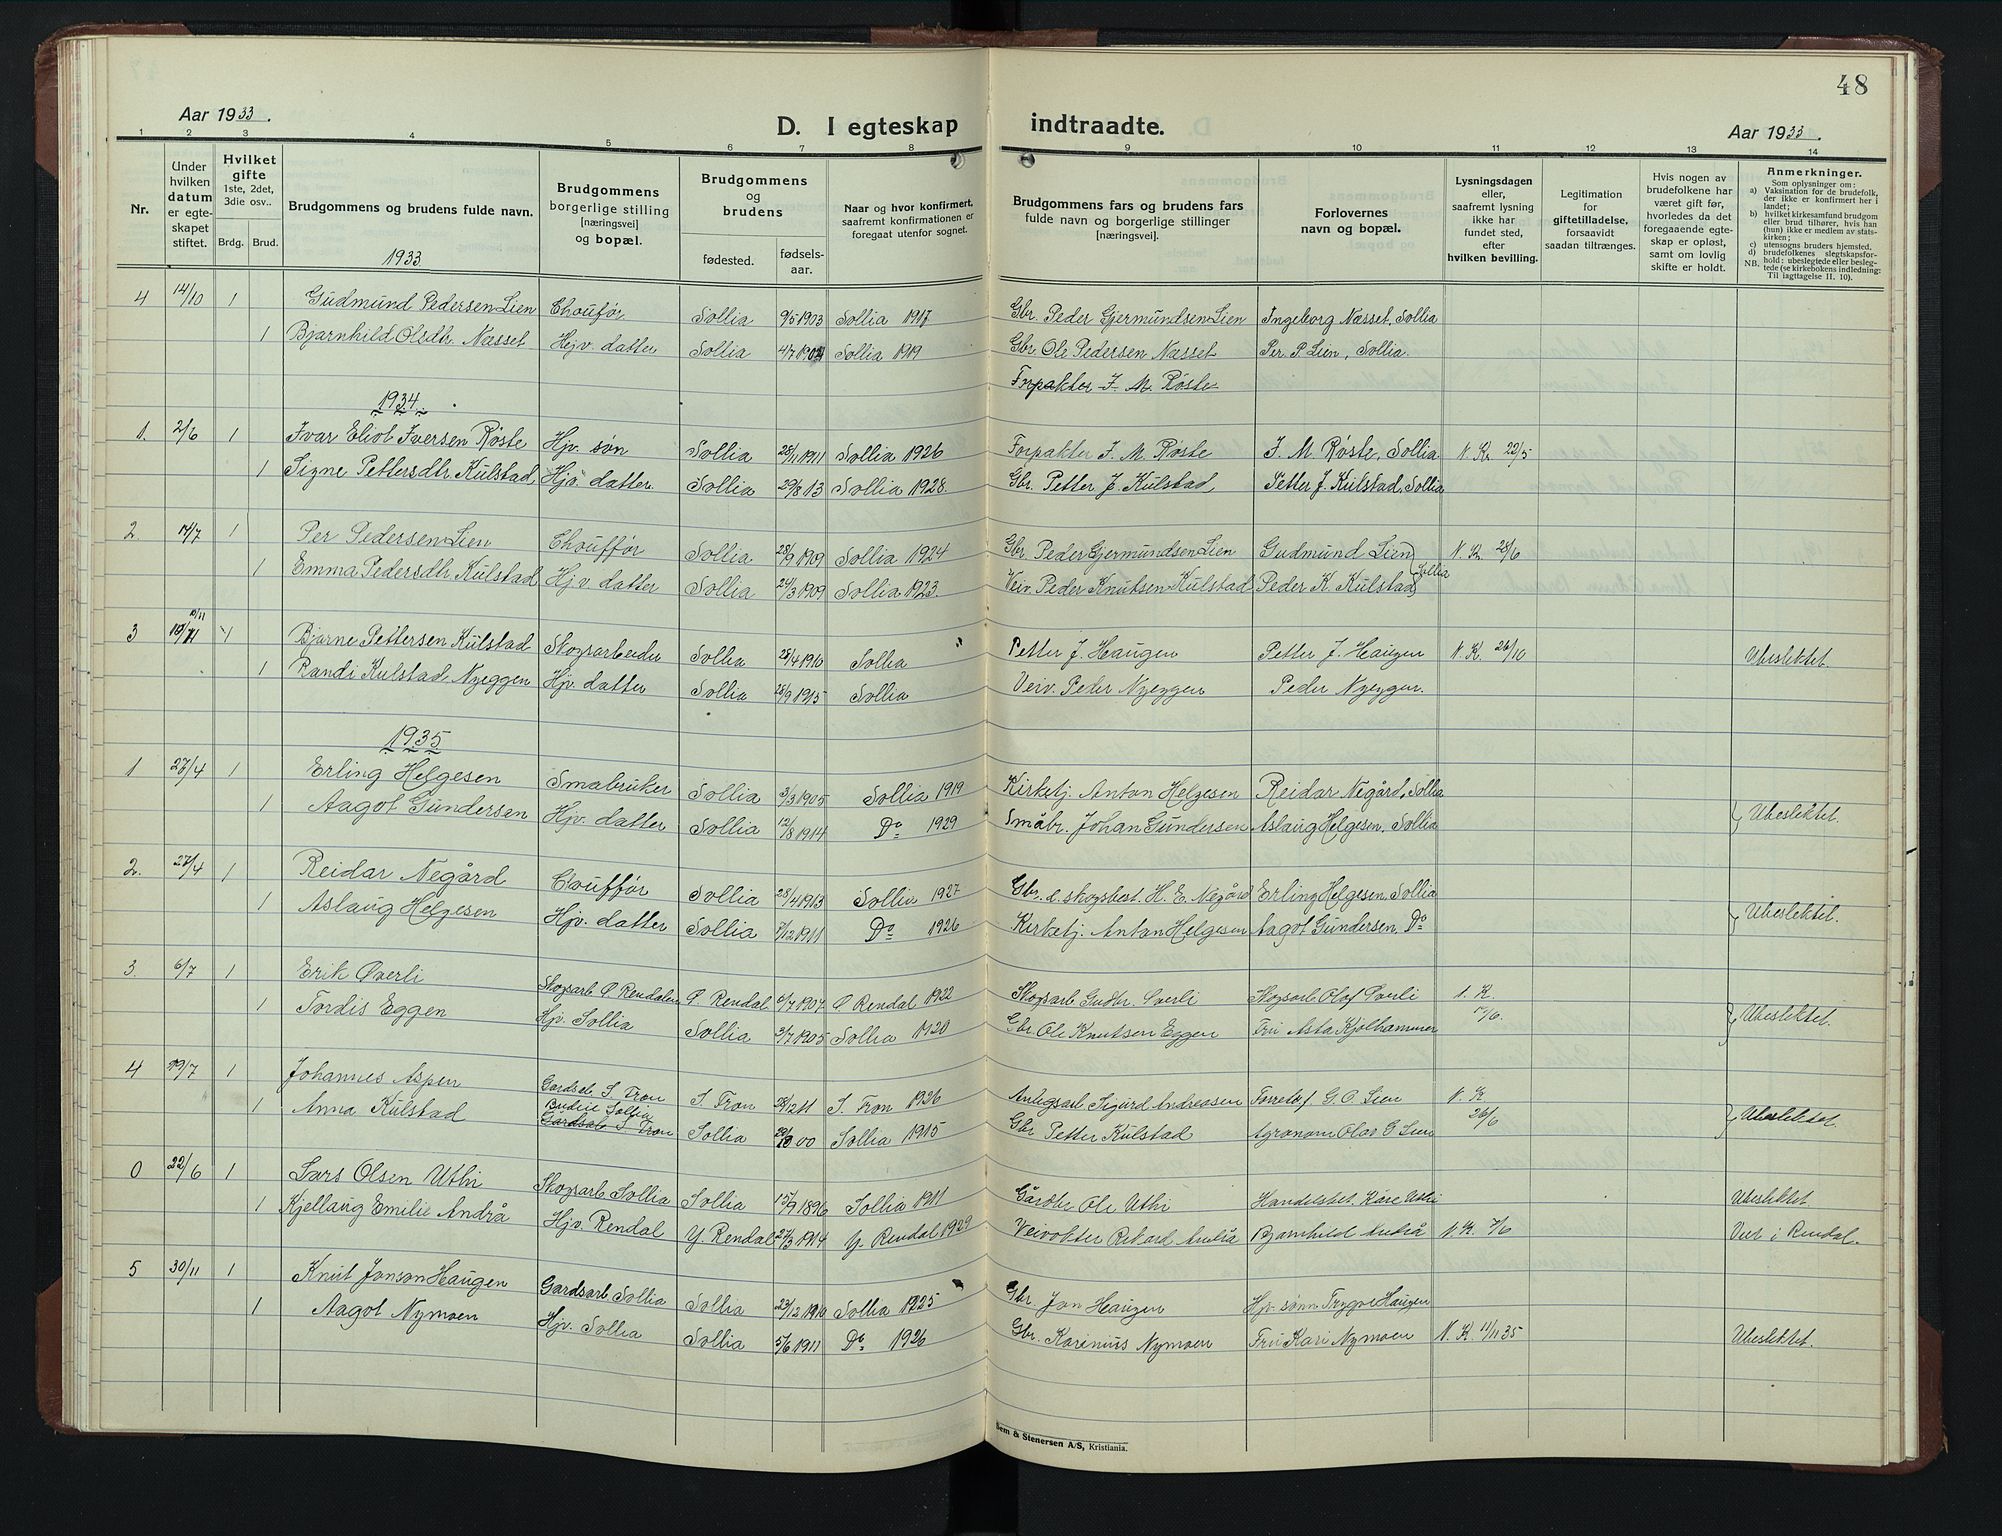 48
Aar 1933.
D. I egteskap indtraadte.
Aar 1933.
1 2 3 4 5 6 7 8 9 10 11 12 13 14
Nr.
Under hvilken datum er egte-skapet stiftet.
Hvilket gifte 1ste, 2det, 3die osv..
Brdg. Brud.
Brudgommens og brudens fulde navn.
Brudgommens borgerlige stilling [næringsvei] og bopæl.
Brudgommens og brudens
fødested. fødsels-aar.
Naar og hvor konfirmert, saafremt konfirmationen er foregaat utenfor sognet.
Brudgommens fars og brudens fars fulde navn og borgerlige stillinger [næringsvei].
Forlovernes navn og bopæl.
Lysningsdagen eller, saafremt lysning ikke har fundet sted, efter hvilken bevilling.
Legitimation for giftetilladelse, forsaavidt saadan tiltrænges.
Hvis nogen av brudefolkene har været gift før, hvorledes da det foregaaende egte-skap er opløst, samt om lovlig skifte er holdt.
Anmerkninger.
Som oplysninger om:
a) Vaksination for de brudefolk, der ikke er konfirmert her i landet;
b) hvilket kirkesamfund brudgom eller brud tilhører, hvis han (hun) ikke er medlem av stats-kirken;
c) utensogns bruders hjemsted.
d) brudefolkenes slegtskapsfor-hold: ubeslegtede eller besleg-
NB. tede (se kirkebokens indledning: Til iagttagelse II. 10).
1933
4 14/10 1 Gudmund Pedersen Lien Chouför Sollia 9/5 1903 Sollia 1917 Gbr. Peder Gjermundsen Lien Ingeborg Næsset, Sollia
1 Bjarnhild Olsdtr. Næsset Hjv. datter Sollia 4/7 1904 Sollia 1919 Gbr Ole Pedersen Næsset Per. P. Lien, Sollia.
Forpakter I. M. Røste
1934
1. 2/6 1 Ivar Eliot Iversen Røste Hjv. søn Sollia 28/11 1911 Sollia 1926 Forpakter I. M. Røste I. M Røste, Sollia N. K. 22/5
1 Signe Pettersdtr Kulstad Hjv. datter. Sollia 29/8 13 Sollia 1928. Gbr. Petter J. Kulstad, Petter J. Kulstad, Sollia
2. 14/7 1 Per Pedersen Lien Chouffør Sollia 28/9 1909 Sollia 1924 Gbr Peder Gjermundsen Lien Gudmund Lien N. K. 28/6
1 Emma Pedersdtr Kulstad Hjv. datter Sollia 24/3 1909 Sollia 1923. Veiv. Peder Knutsen Kulstad Peder K. Kulstad Sollia
3 10/11 1 Bjarne Pettersen Kulstad Skogsarbeider Sollia 28/4 1910 Sollia " Petter J. Haugen Petter J. Haugen N. K. 26/10 Ubeslektet.
1 Randi Kulstad Nyeggen Hjv. datter Sollia 28/9 1915 Sollia Veiv. Peder Nyeggen Peder Nyeggen.
1935
1 27/4 1 Erling Helgesen Småbruker Sollia 3/3 1905 Sollia 1919 Kirketj. Anton Helgesen Reidar Negård, Sollia
1 Aagot Gundersen Hjv. datter Sollia 12/8 1914 Do 1929 Småbr. Johan Gundersen Aslaug Helgesen, Sollia Ubeslektet.
2. 27/4 1 Reidar Negård Chouffør Sollia 28/4 1913 Sollia 1927 Gbr. & skogsbest. H. E. Negård Erling Helgesen, Sollia
1 Aslaug Helgesen Hjv. datter Sollia 7/12 1911 Do 1926 Kirketj. Anton Helgesen Aagot Gundersen, Do Ubeslektet.
3. 6/7 1 Erik Øverli Skogsarb Ø Rendalen Ø. Rendal 6/7 1907 Ø Rendal 1922 Skogsarb Gudbr. Øverli Skogsarb Olaf Øverli N. K.
1 Tordis Eggen Hjv. Sollia Sollia 3/7 1905 Sollia 1920 Gbr. Ole Knutsen Eggen Fru Asta Kjølhammer 17/6. Ubeslektet.
4 19/7 1 Johannes Aspen Gardsb. S. Fron S. Fron 12 11 S. Fron 1926 Anlegsarb Sigurd Andreasen Forretbf G. O. Lien N. K
1 Anna Kulstad Budeie Sollia Gardsarb S. Fron Sollia 00 Sollia 1915 Gbr Petter Kulstad Agronom Olav G Lien 26/6 Ubeslektet.
0 22/6 1 Lars Olsen Uthi Skogsarb Sollia Sollia 15/9 1896 Sollia 1911 Gårdbr Ole Uthi Handelsbet. Kåre Uthi Ubeslektet.
1 Kjellaug Emilie Andrå Hjv. Rendal Y. Rendal 27/3 1914 Y. Rendal 1929 Veivokter Rikard Andrå Bjarnhild Andrå N. K. 7/6 Viet i Rendal.
5 30/11 1 Knut Jonson Haugen Gardsarb Sollia Sollia 23/12 1910 Sollia 1925 Gbr. Jon Haugen Hjv. sønn Trygve Haugen
1 Aagot Nymoen Hjv. Sollia Sollia 5/6 1911 Do 1926 Gbr. Karenius Nymoen Fru Kari Nymoen N. K. 11/11 35 Ubeslektet.
Sem & Stenersen A/S, Kristiania.